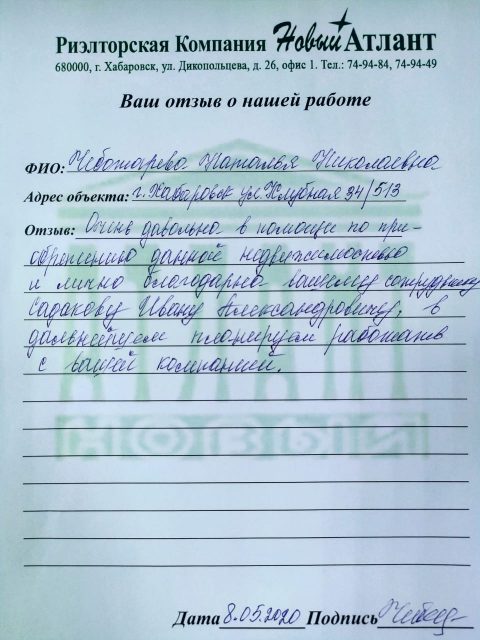 Риэлторская Компания Новый Атлант
680000, г. Хабаровск, ул. Дикопольцева, д. 26, офис 1. Тел.: 74-94-84, 74-94-49
Ваш отзыв о нашей работе
ФИО: Чеботарева Наталья Николаевна
Адрес объекта: г. Хабаровск ул. Клубная 34/513
Отзыв: Очень довольна в помощи по при-
обретению данной недвижимостью
и лично благодарна вашему сотруднику
Садакову Ивану Александровичу, в
дальнейшем планируем работать
с вашей компанией.
Дата 8.05.2020 Подпись